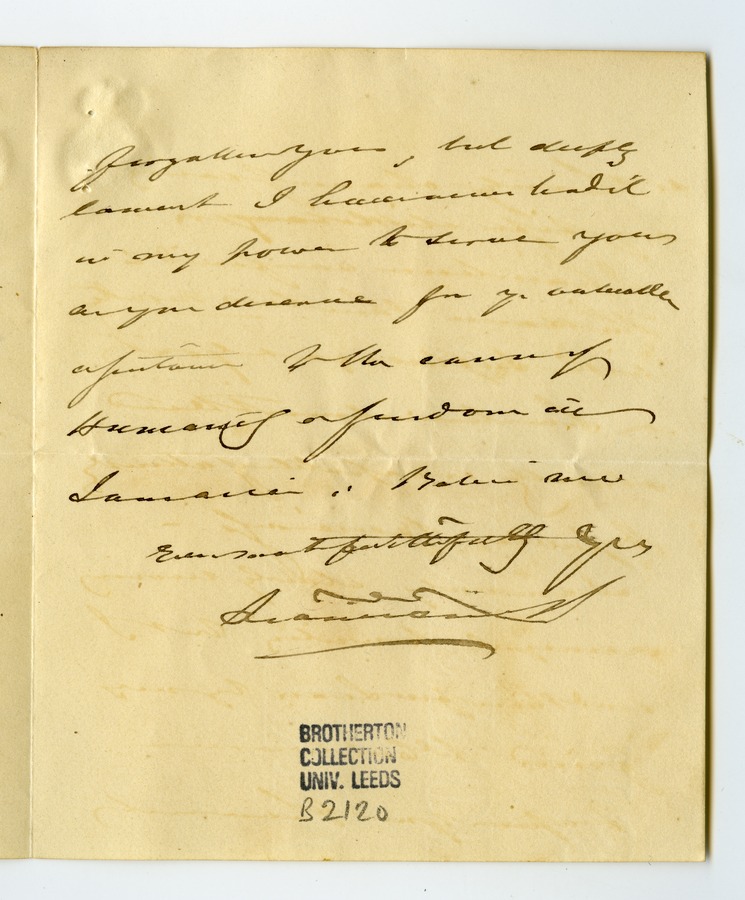 forgotten you, but deeply
lament I have never had it
in my power to serve you
as you deserve for yr valuable
assistance to the cause of
Humanity & freedom in
Jamaica. Believe me
Ever most faithfully Yrs
BROTHERTON
COLLECTION
UNIV. LEEDS
B2120